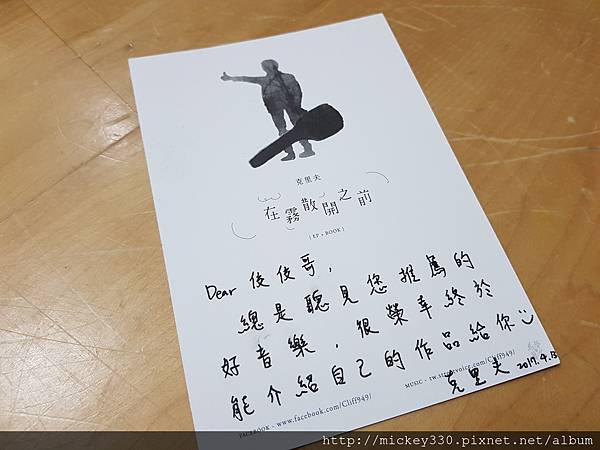 克里夫
在霧散開之前
( EP + BOOK )
Dear 俊俊哥，
總是聽見您推薦的
好音樂，很榮幸終於
能介紹自己的作品給你
MUSIC - tw.streetvoice.com/Cliff949/
FACEBOOK - www.facebook.com/Cliff949/
克里夫 2017.4.13
http://mickey330.pixnet.net/album